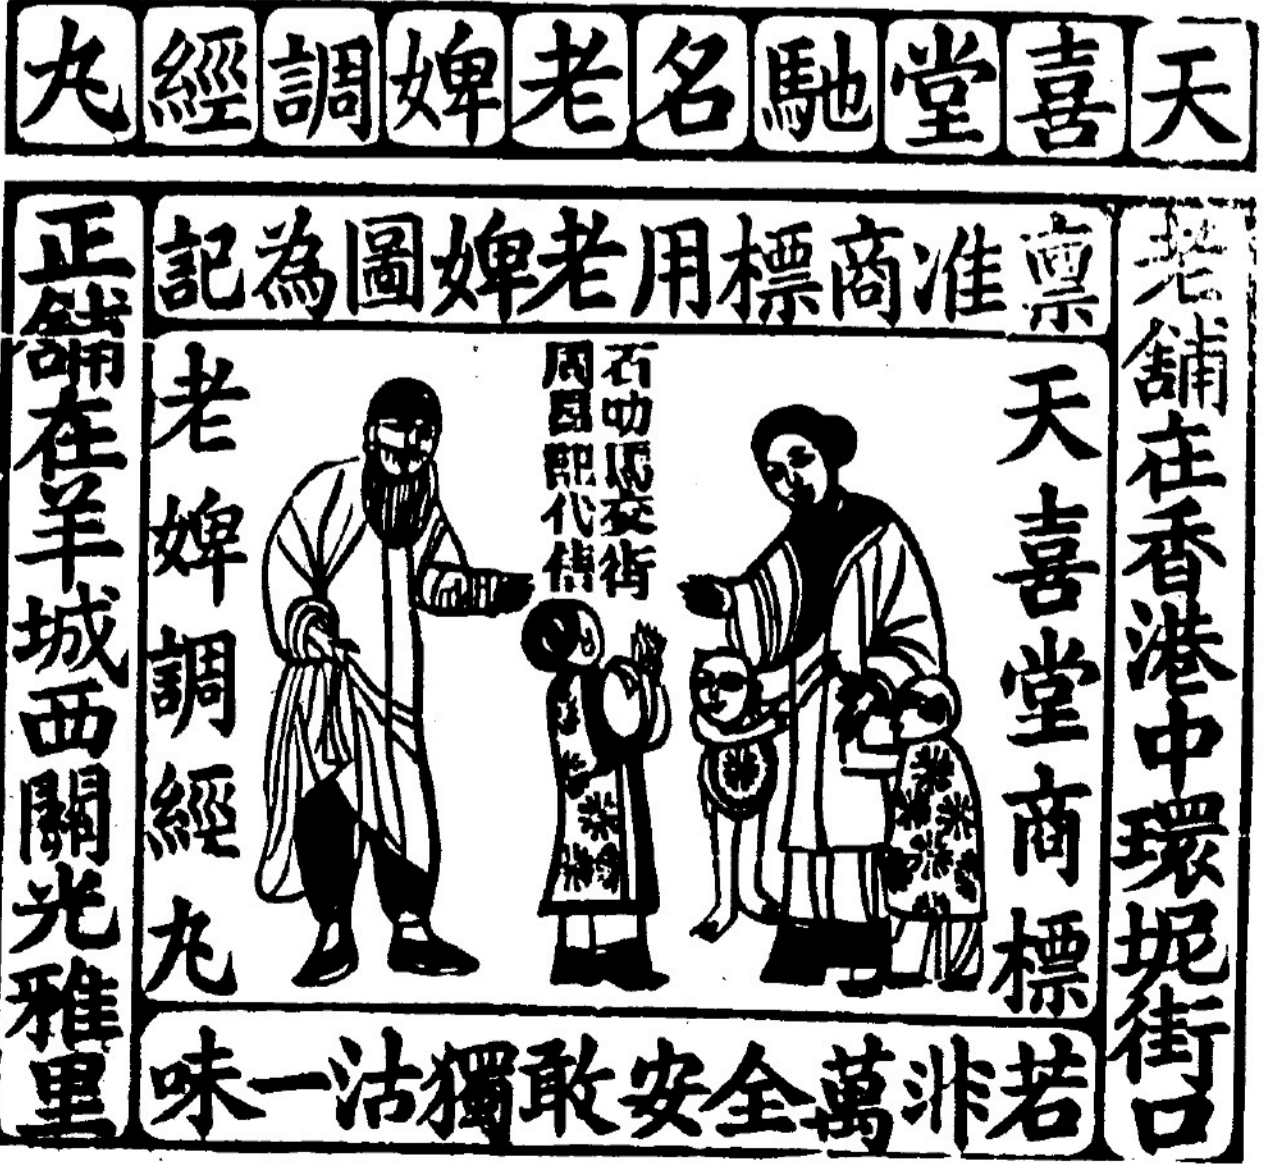 天喜堂馳名老婢調經丸
老舖在香港中環坭街口
禀准商標用老婢圖為記
天喜堂商標
石叻
老婢調經丸
若非萬全安敢獨沽一味
正舖在羊城西關光雅里